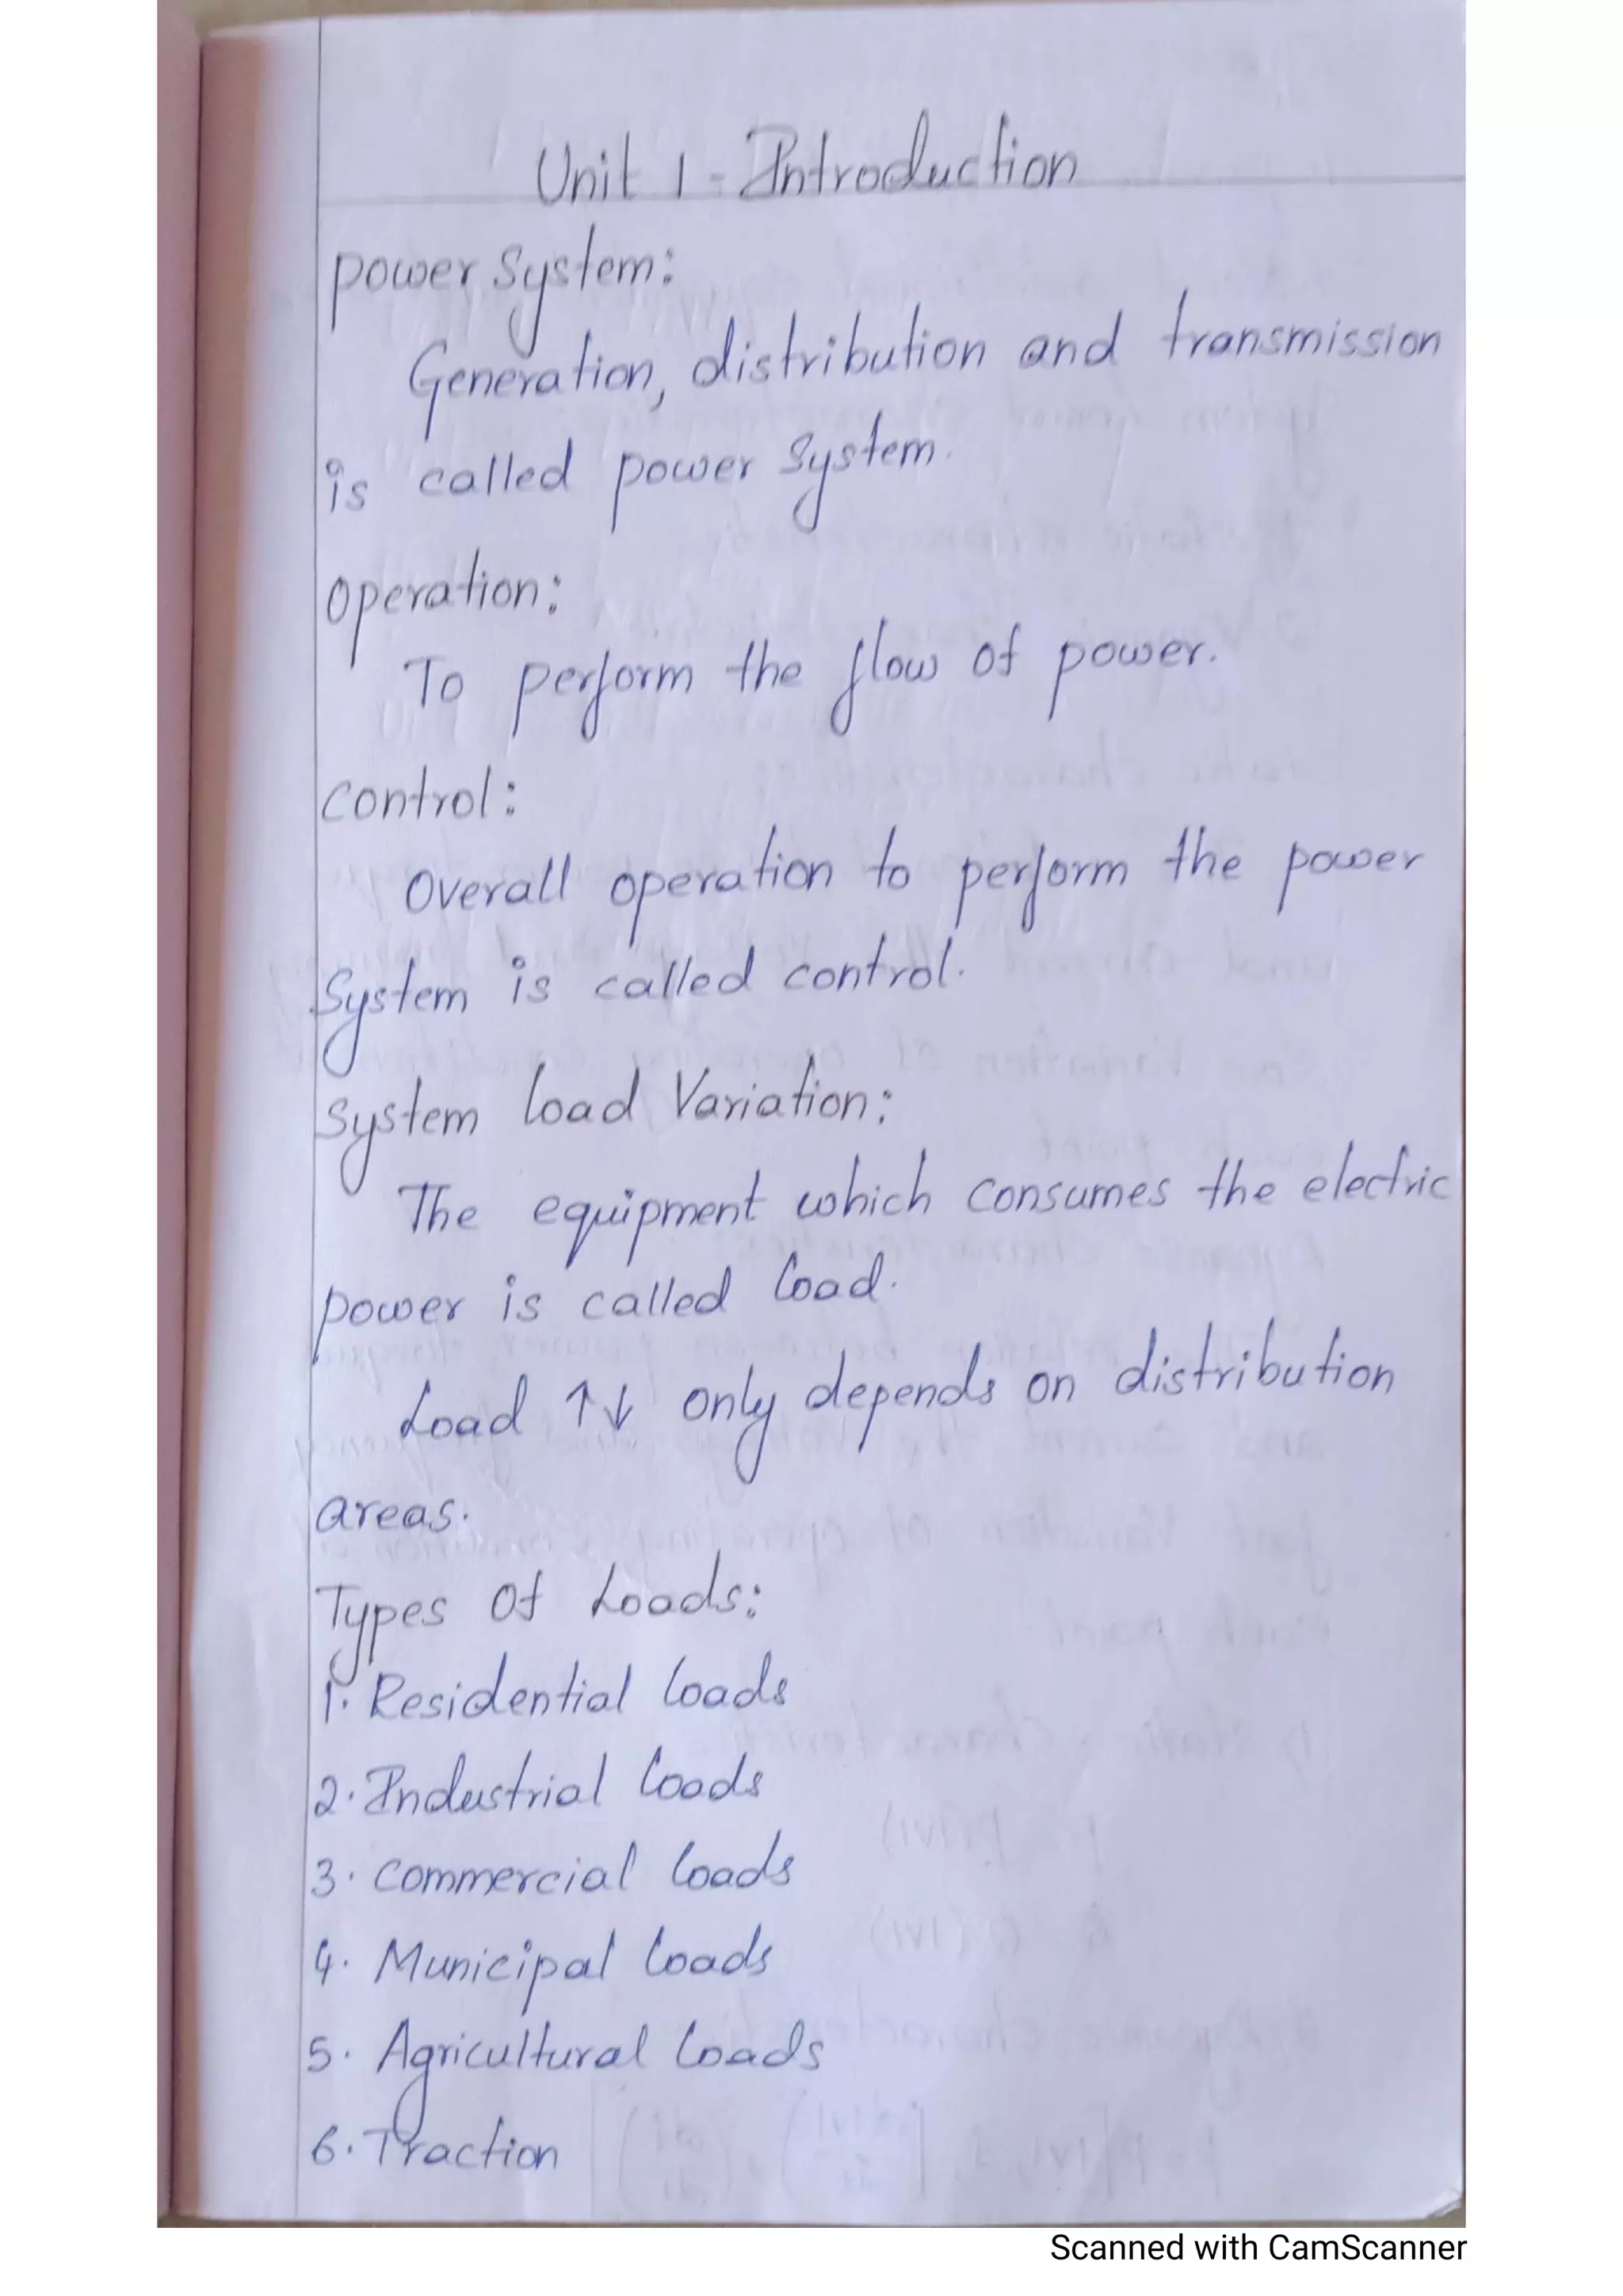 Unit 1 - Introduction
Power System:
Generation, distribution and transmission
is called power system.
Operation:
To perform the flow of power.
Control:
Overall operation to perform the power
System is called control.
System load Variation:
The equipment which consumes the electric
power is called load.
Load ↑↓ only depends on distribution
areas.
Types of Loads:
1. Residential loads
2. Industrial loads
3. Commercial loads
4. Municipal loads
5. Agricultural loads
6. Traction
Scanned with CamScanner